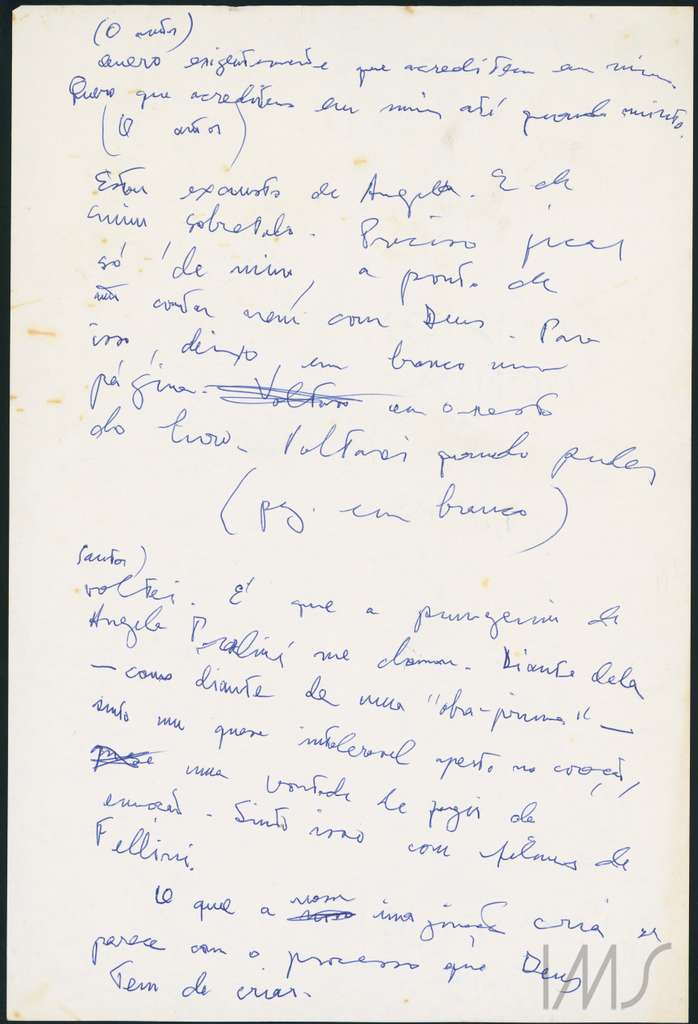 (O autor)
Quero exigentemente que acreditem em mim.
Quero que acreditem em mim até quando minto.
(O autor)
Estou exausto de Angela. E de
mim sobretudo. Preciso ficar
só de mim, a ponto de
não contar nem com Deus. Para
isso, deixo em branco uma
página. Voltarei em o resto
do livro. Voltarei quando puder
(pg. em branco)
(autor)
Voltei. É que a pungência de
Angela Pralini me chamou. Diante dela
— como diante de uma "obra-prima" —
sinto um quase intolerável aperto no coração,
uma vontade de fugir da
emoção. Sinto isso com filmes de
Fellini.
O que a nossa imaginação cria se
parece com o processo que Deus
tem de criar.
IMS